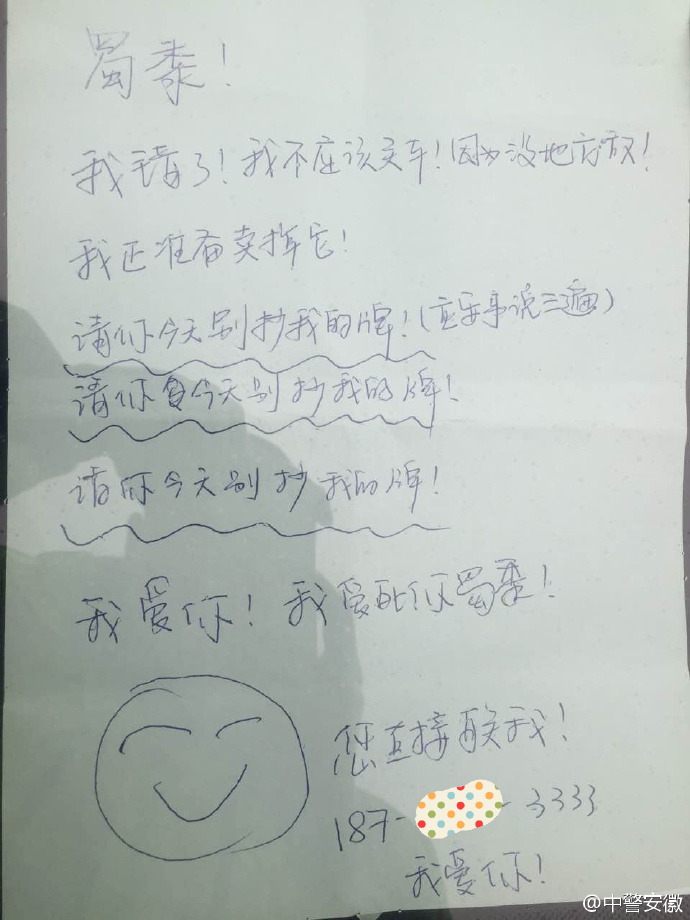 蜀黍!
我错了!我不应该买车!因为没地方放!
我正准备卖掉它!
请你今天别抄我的牌!(重要事说三遍)
请你今天别抄我的牌!
请你今天别抄我的牌!
我爱你!我爱死你蜀黍!
您直接联系我!
187- -3333
我爱你!
@中警安徽